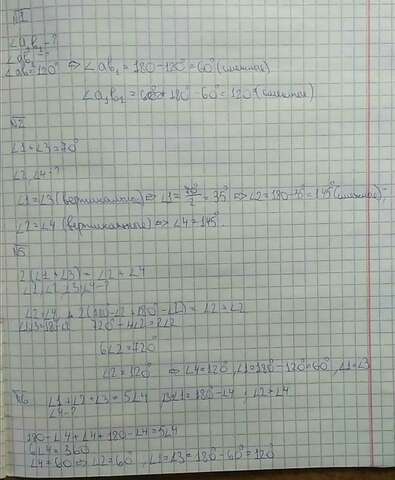 №1
∠a₁b₁-?
∠ab₁
∠ab=120° ⇒ ∠ab₁ = 180-120°=60° (смежные)
∠a₁b₁ = 180°-60°=120° (смежные)
№2
∠1+∠3=70°
∠2,∠4-?
∠1=∠3 (вертикальные) ⇒ ∠1= 70°/2 = 35° ⇒ ∠2=180-35°=145° (смежные),
∠2=∠4 (вертикальные) ⇒ ∠4=145°.
№5
2(∠1+∠3) = ∠2+∠4
∠1,∠2,∠3,∠4-?
∠2=∠4, 2(180-∠2+180-∠2) = ∠2+∠2
720°-4∠2=2∠2
6∠2=720°
∠2=120° ⇒ ∠4=120°, ∠1=180°-120°=60°, ∠1=∠3
№6 ∠1+∠2+∠3=5∠4 ∠1=180-∠4, ∠2=∠4
∠4-?
180-∠4+∠4+180-∠4=5∠4
6∠4=360
∠4=60 ⇒ ∠2=60°, ∠1=∠3=180°-60°=120°